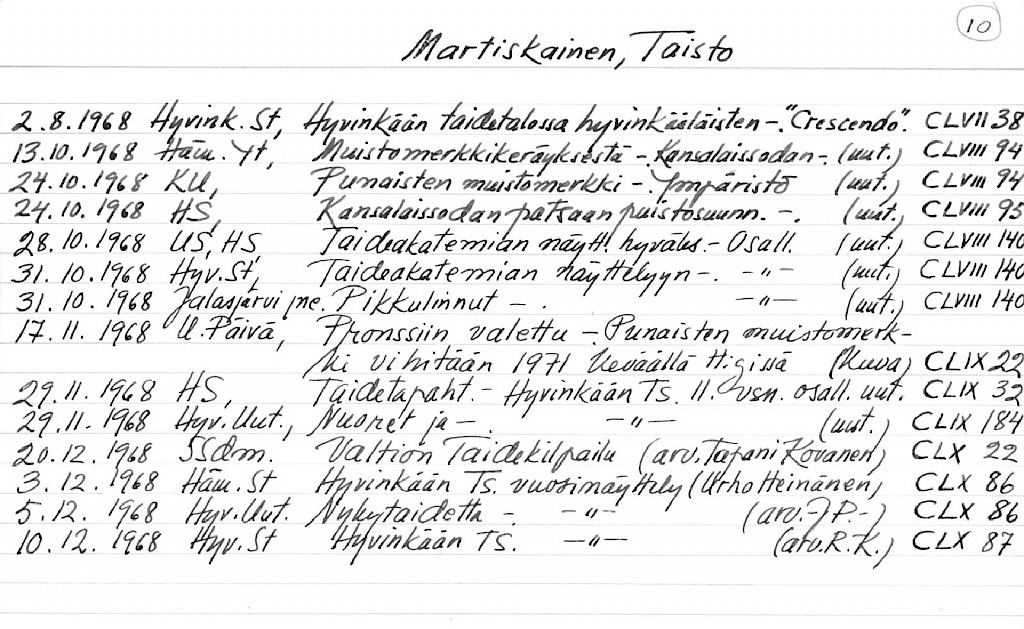 10
Martiskainen, Taisto
2.8.1968 Hyvink. St, Hyvinkään taidetalossa hyvinkääläisten -. "Crescendo". CLVII 38
13.10.1968 Häm. Yt, Muistomerkkikeräyksestä - Kansalaissodan -. (uut.) CLVIII 94
24.10.1968 KU, Punaisten muistomerkki -. Ympäristö (uut.) CLVIII 94
24.10.1968 HS, Kansalaissodan patsaan puistosuunn. -. (uut.) CLVIII 95
28.10.1968 US, HS, Taideakatemian näytt. hyväks. - Osall. (uut.) CLVIII 140
31.10.1968 Hyv. St, Taideakatemian näyttelyyn -. -"- (uut.) CLVIII 140
31.10.1968 Jalasjärvi, Pikkulinnut -. -"- (uut.) CLVIII 140
17.11.1968 U. Päivä, Pronssiin valettu -. Punaisten muistomerk-
ki vihitään 1971 keväällä H:gissä (kuva) CLIX 22
29.11.1968 HS, Taidetapaht. - Hyvinkään Ts. 11. vsn. osall. uut. CLIX 32
29.11.1968 Hyv. Uut., Nuoret ja -. -"- (uut.) CLIX 184
20.12.1968 SSdm. Valtion Taidekilpailu (arv. Tapani Kovanen) CLX 22
3.12.1968 Häm. St Hyvinkään Ts. vuosinäyttely (Urho Heinänen) CLX 86
5.12.1968 Hyv. Uut. Nykytaidetta -. -"- (arv. J P. -) CLX 86
10.12.1968 Hyv. St Hyvinkään TS. -"- (arv. R.K.) CLX 87